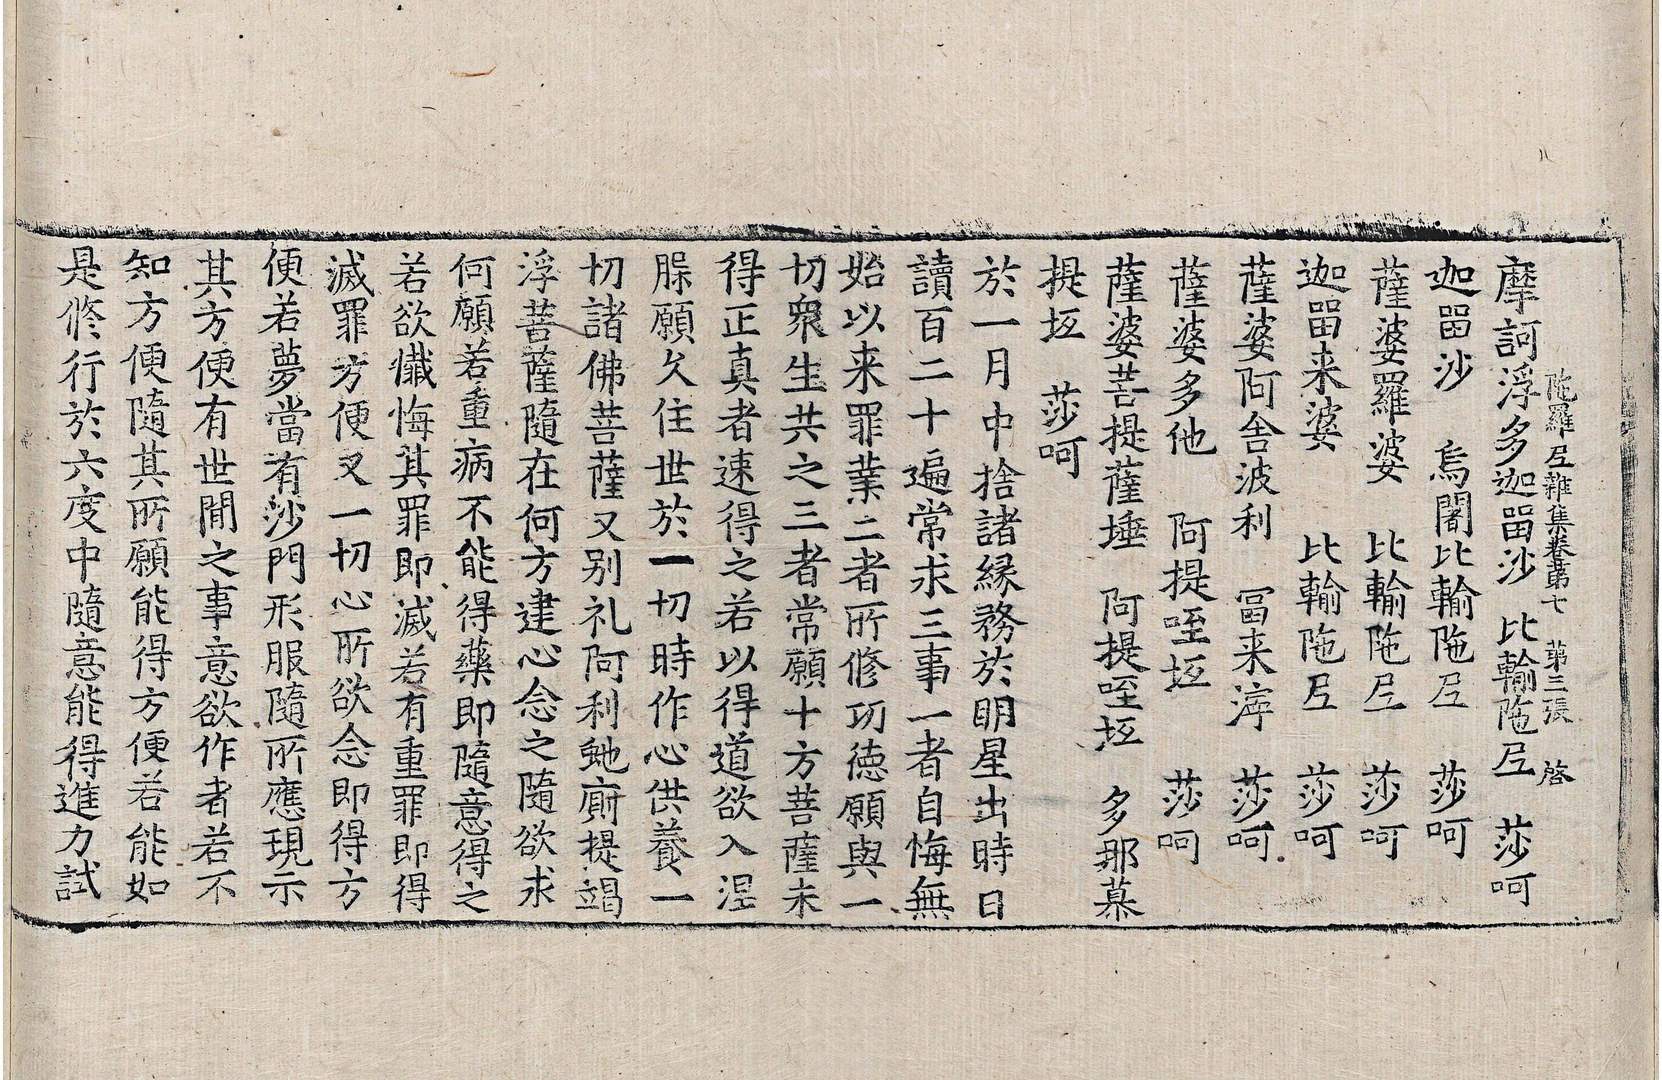 陁羅尼雜集卷第七　第三張　啓
摩訶浮多迦留沙　比輸陁尼　莎呵
迦留沙　烏闍比輸陁尼　莎呵
薩婆羅婆　比輸陁尼　莎呵
迦留来婆　比輸陁尼　莎呵
薩婆阿舍波利　冨来滓　莎呵
薩婆多他　阿提咥坘　莎呵
薩婆菩提薩埵　阿提咥坘　多那慕
提坘　莎呵
於一月中捨諸緣務於明星出時日
讀百二十遍常求三事一者自悔無
始以来罪業二者所修功德願與一
切衆生共之三者常願十方菩薩未
得正真者速得之若以得道欲入涅
脲願久住世於一切時作心供養一
切諸佛菩薩又别礼阿利虵廁提竭
浮菩薩隨在何方建心念之隨欲求
何願若重病不能得藥即隨意得之
若欲懺悔其罪即滅若有重罪即得
滅罪方便又一切心所欲念即得方
便若夢當有沙門形服隨所應現示
其方便有世閒之事意欲作者若不
知方便隨其所願能得方便若能如
是修行於六度中隨意能得進力試